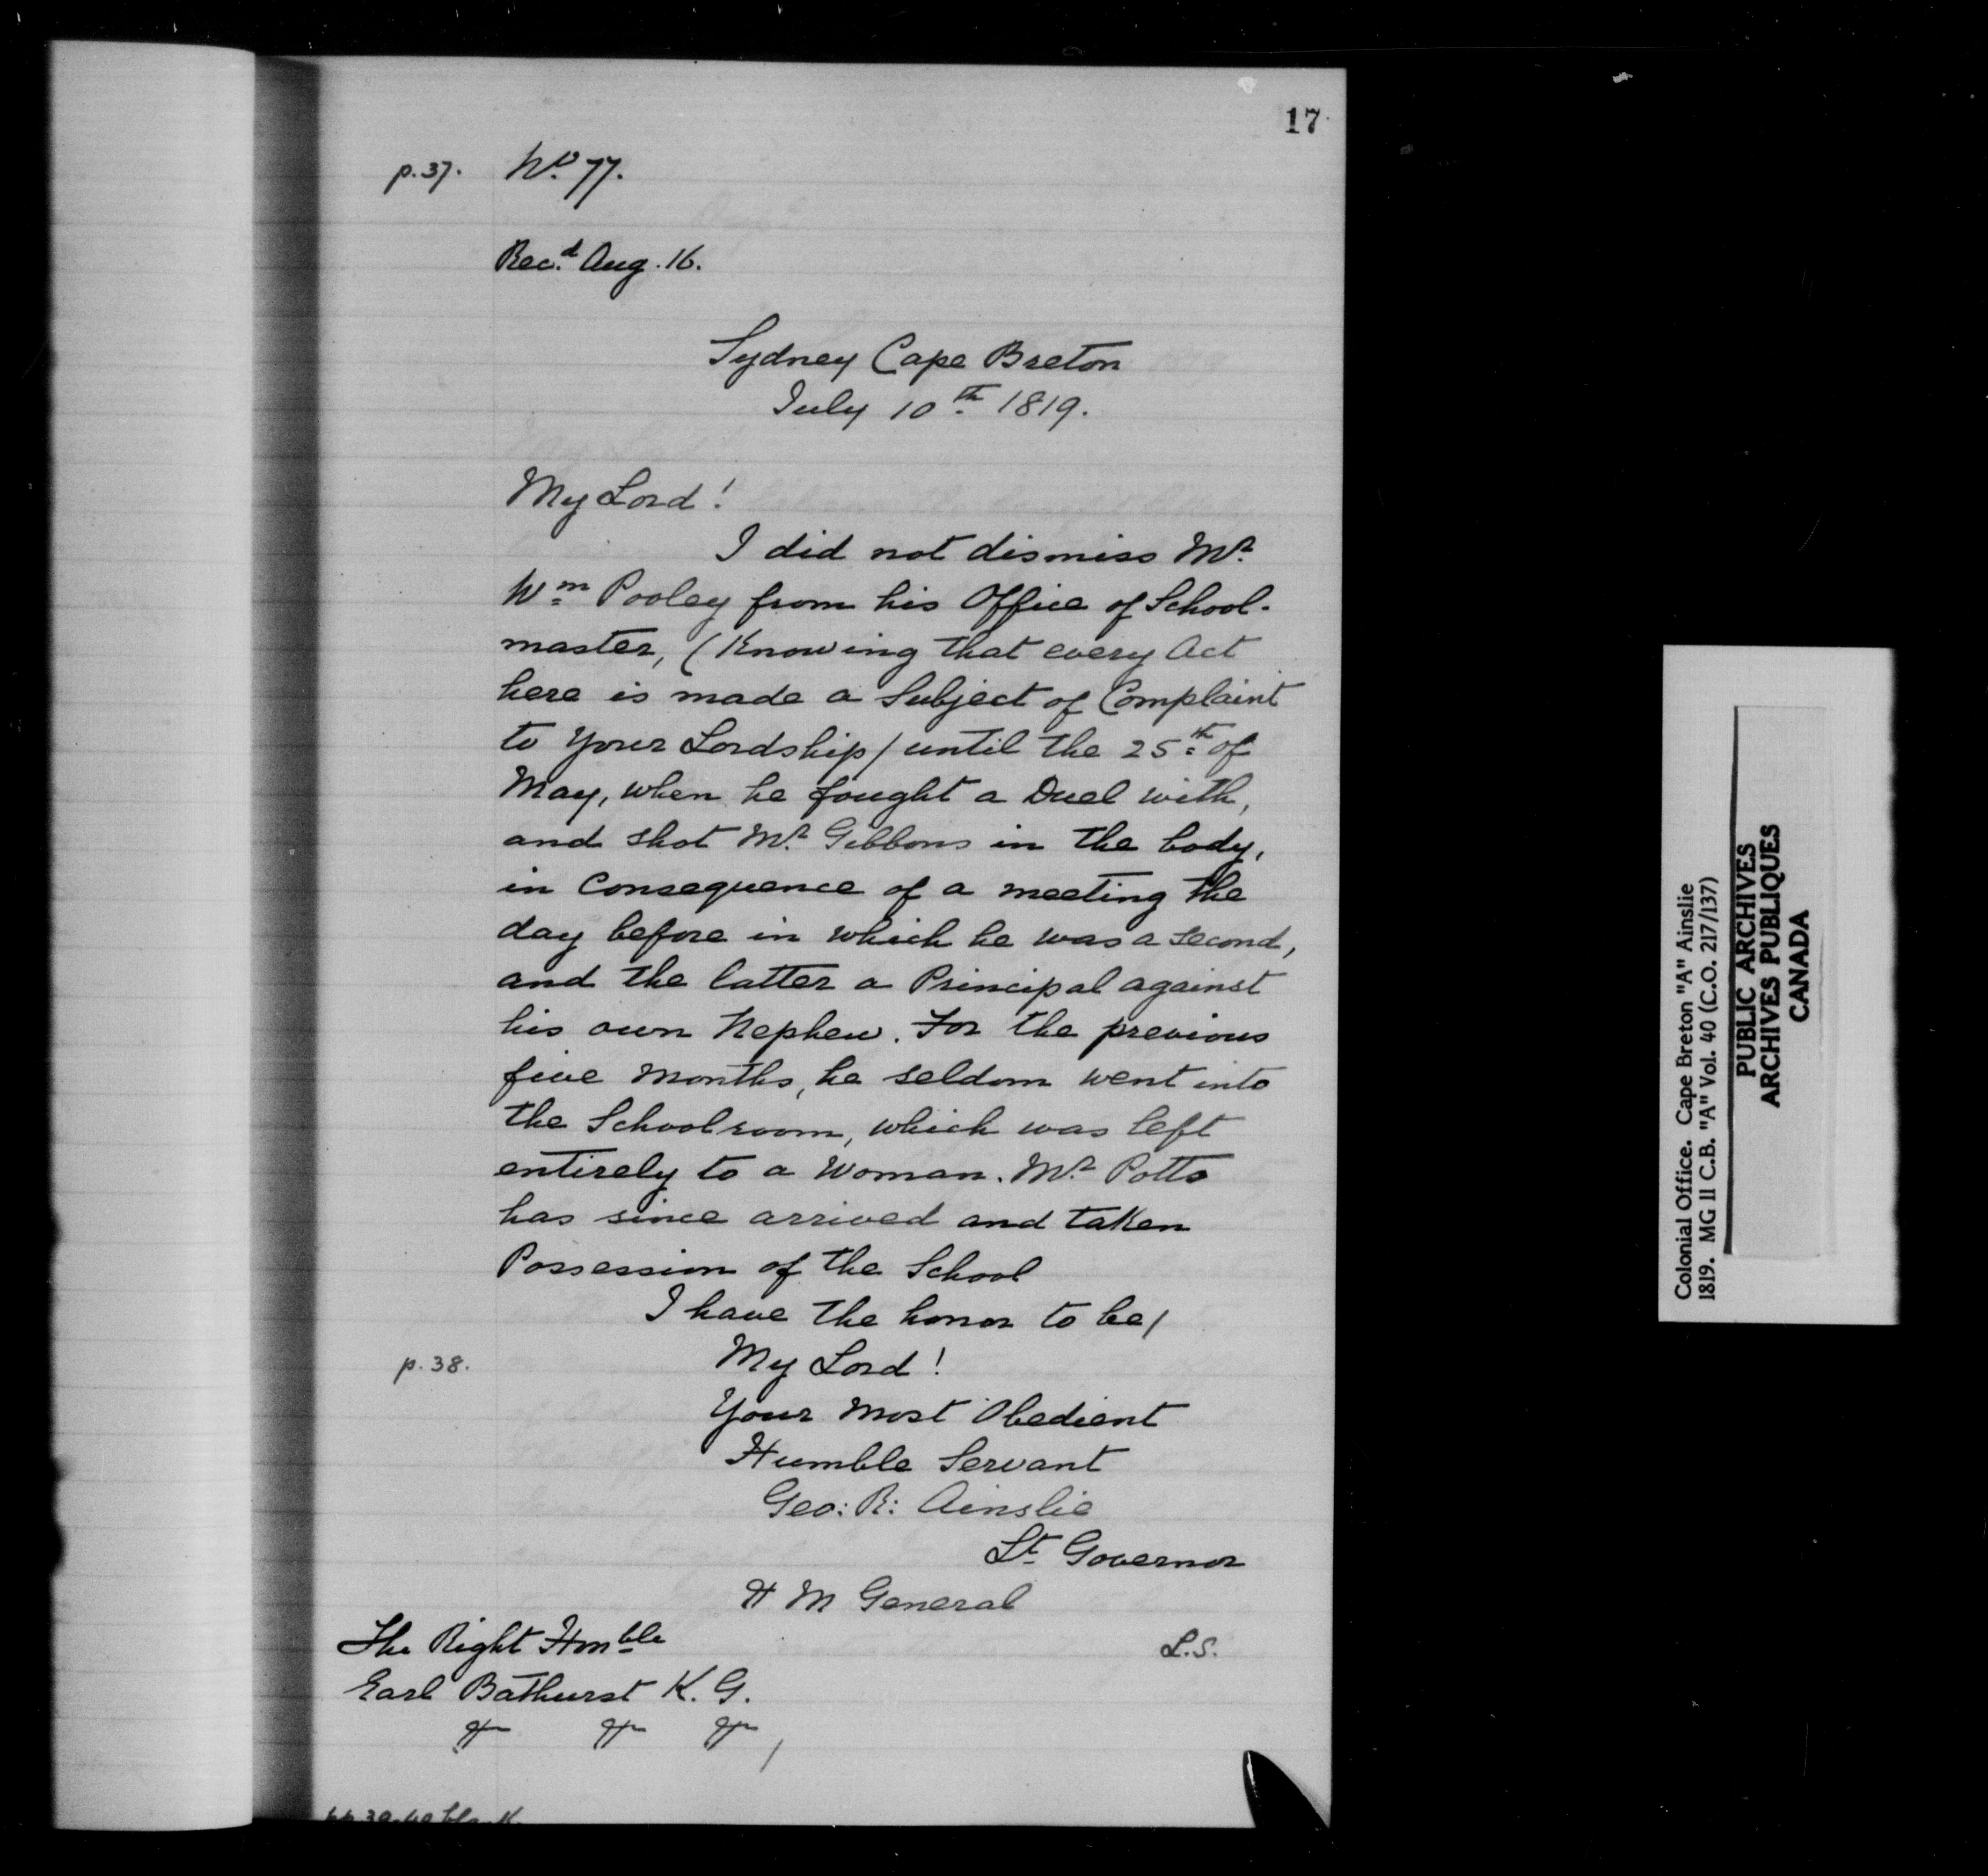 17
p.37. No. 77.
Rec.d Aug. 16.
Sydney Cape Breton
July 10th 1819.
My Lord!
I did not dismiss Mr.
Wm Pooley from his Office of School-
master, (Knowing that every Act
here is made a Subject of Complaint
to Your Lordship/ until the 25th of
May, when he fought a Duel with,
and shot Mr. Gibbons in the body,
in Consequence of a meeting the
day before in which he was a second,
and the latter a Principal against
his own Nephew. For the previous
five Months, he seldom went into
the Schoolroom, which was left
entirely to a Woman. Mr. Potts
has since arrived and taken
Possession of the School
I have the honor to be/
p. 38. My Lord!
Your Most Obedient
Humble Servant
Geo: R: Ainslie
Lt. Governor
& M General
The Right Honble
L.S.
Earl Bathurst K. G.
& & &
pp 39-40 blank
Colonial Office. Cape Breton "A" Ainslie
1819. MG 11 C.B. "A" Vol. 40 (C.O. 217/137)
PUBLIC ARCHIVES
ARCHIVES PUBLIQUES
CANADA